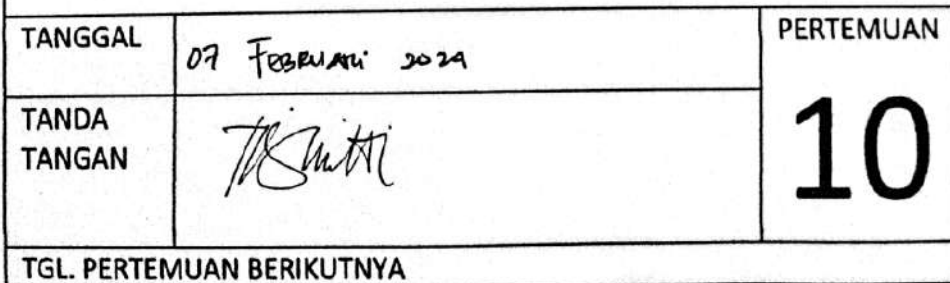 TANGGAL
07 FEBRUARI 2024
PERTEMUAN
10
TANDA
TANGAN
TGL. PERTEMUAN BERIKUTNYA